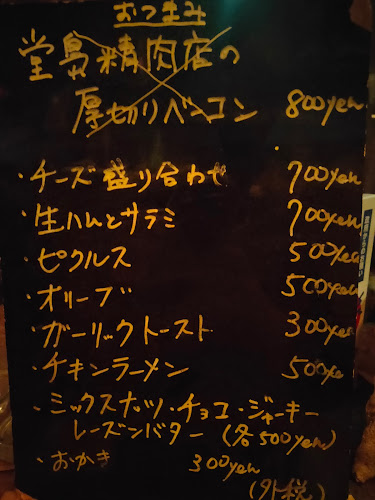 おつまみ
堂島精肉店の
厚切りベーコン 800yen
・チーズ盛り合わせ 700yen
・生ハムとサラミ 700yen
・ピクルス 500yen
・オリーブ 500yen
・ガーリックトースト 300yen
・チキンラーメン 500ye
・ミックスナッツ・チョコ・ジャーキー
レーズンバター (各500yen)
・おかき 300yen
(外税)